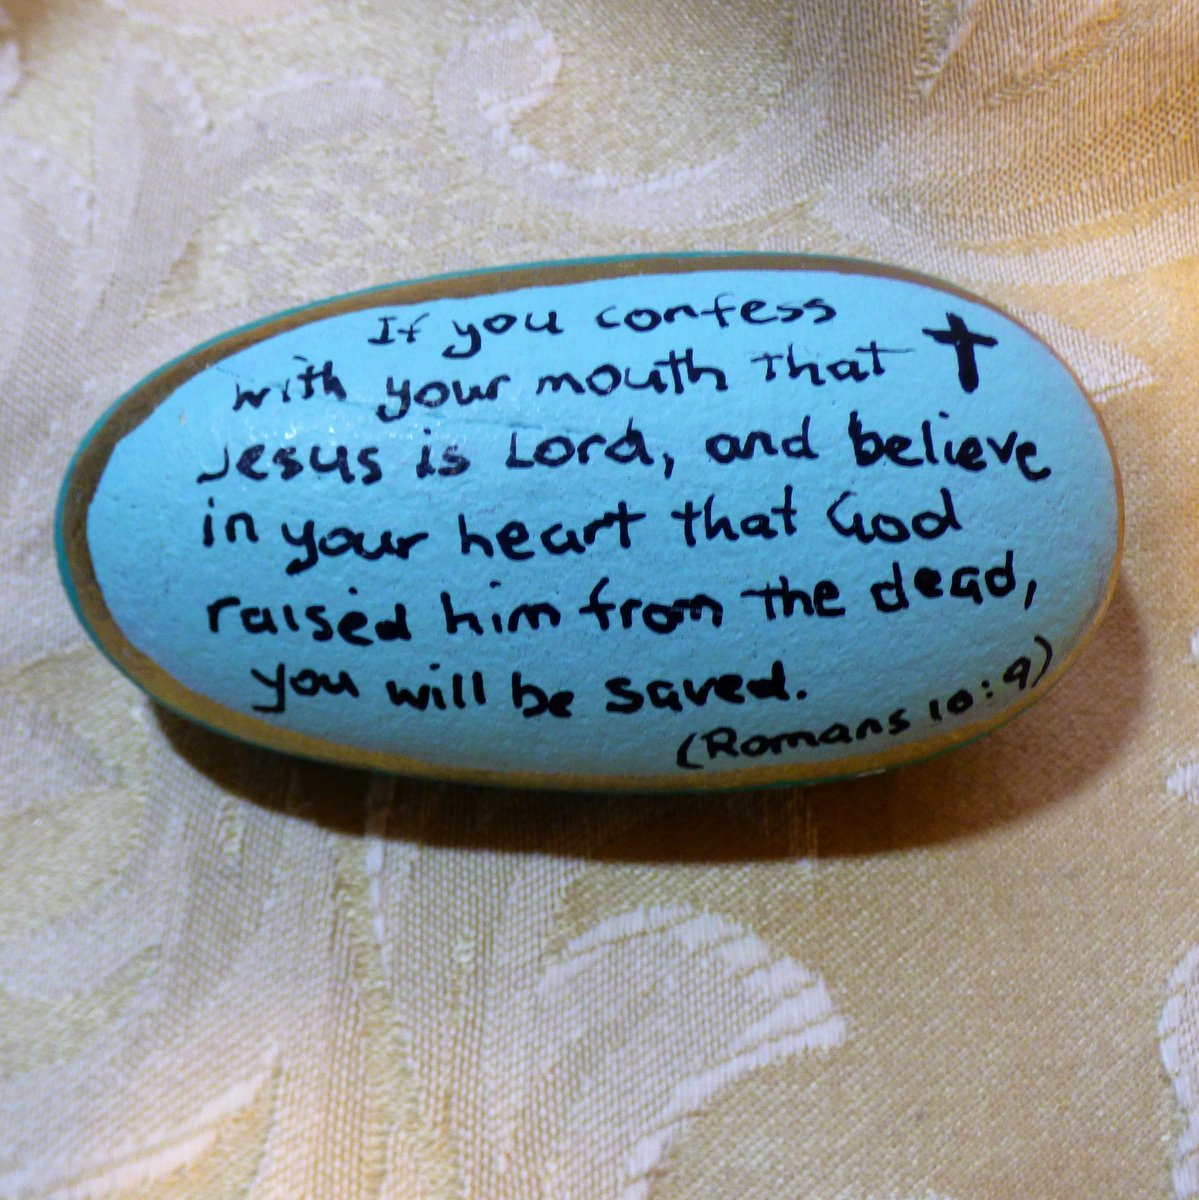 If you confess
with your mouth that
Jesus is Lord, and believe
in your heart that God
raised him from the dead,
you will be saved.
(Romans 10:9)